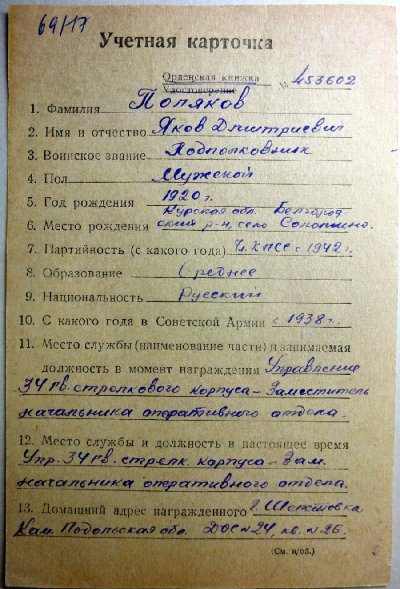 69/17
Учетная карточка
Орденская книжка
Удостоверение № 453602
1. Фамилия Поляков
2. Имя и отчество Яков Дмитриевич
3. Воинское звание Подполковник
4. Пол Мужской
5. Год рождения 1920 г.
Курская обл. Белгород
6. Место рождения ский р-н, село Солохино.
7. Партийность (с какого года) Чл. КПСС с 1942 г.
8. Образование Среднее
9. Национальность Русский
10. С какого года в Советской Армии с 1938 г.
11. Место службы (наименование части) и занимаемая
должность в момент награждения Управление
34 гв. стрелкового корпуса - Заместитель
начальника оперативного отдела.
12. Место службы и должность в настоящее время
Упр. 34 гв. стрелк. корпуса - Зам.
начальника оперативного отдела.
13. Домашний адрес награжденного г. Шепетовка
Кам. Подольская обл. ДОС № 24, кв. № 26.
(См. н/об.)